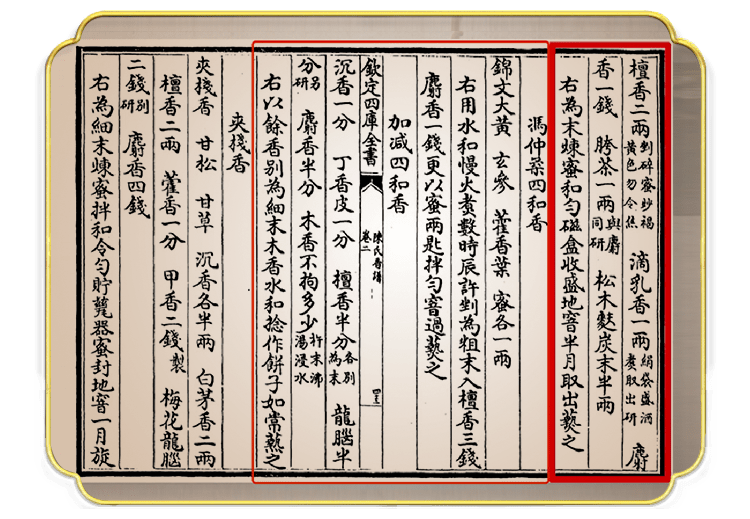 檀香二兩剉碎蜜炒褐黃色勿令焦 滴乳香一兩絹袋盛酒煮取出研 麝
香一錢 胯茶一兩與麝同研 松木麩炭末半兩
右為末煉蜜和勻磁盒收盛地窨半月取出爇之
馮仲柔四和香
錦文大黃 玄參 藿香葉 蜜各一兩
右用水和慢火煮數時辰許剉為粗末入檀香三錢
麝香一錢更以蜜兩匙拌勻窨過爇之
加減四和香
欽定四庫全書 陳氏香譜 卷二
沉香一分 丁香皮一分 檀香半分各別為末 龍腦半
分另研 麝香半分 木香不拘多少杵末沸湯浸水
右以餘香別為細末木香水和捻作餅子如常爇之
夾棧香
夾棧香 甘松 甘草 沉香各半兩 白茅香二兩
檀香二兩 藿香一分 甲香二錢製 梅花龍腦
二錢別研 麝香四錢
右為細末煉蜜拌和令勻貯甆器蜜封地窨一月旋